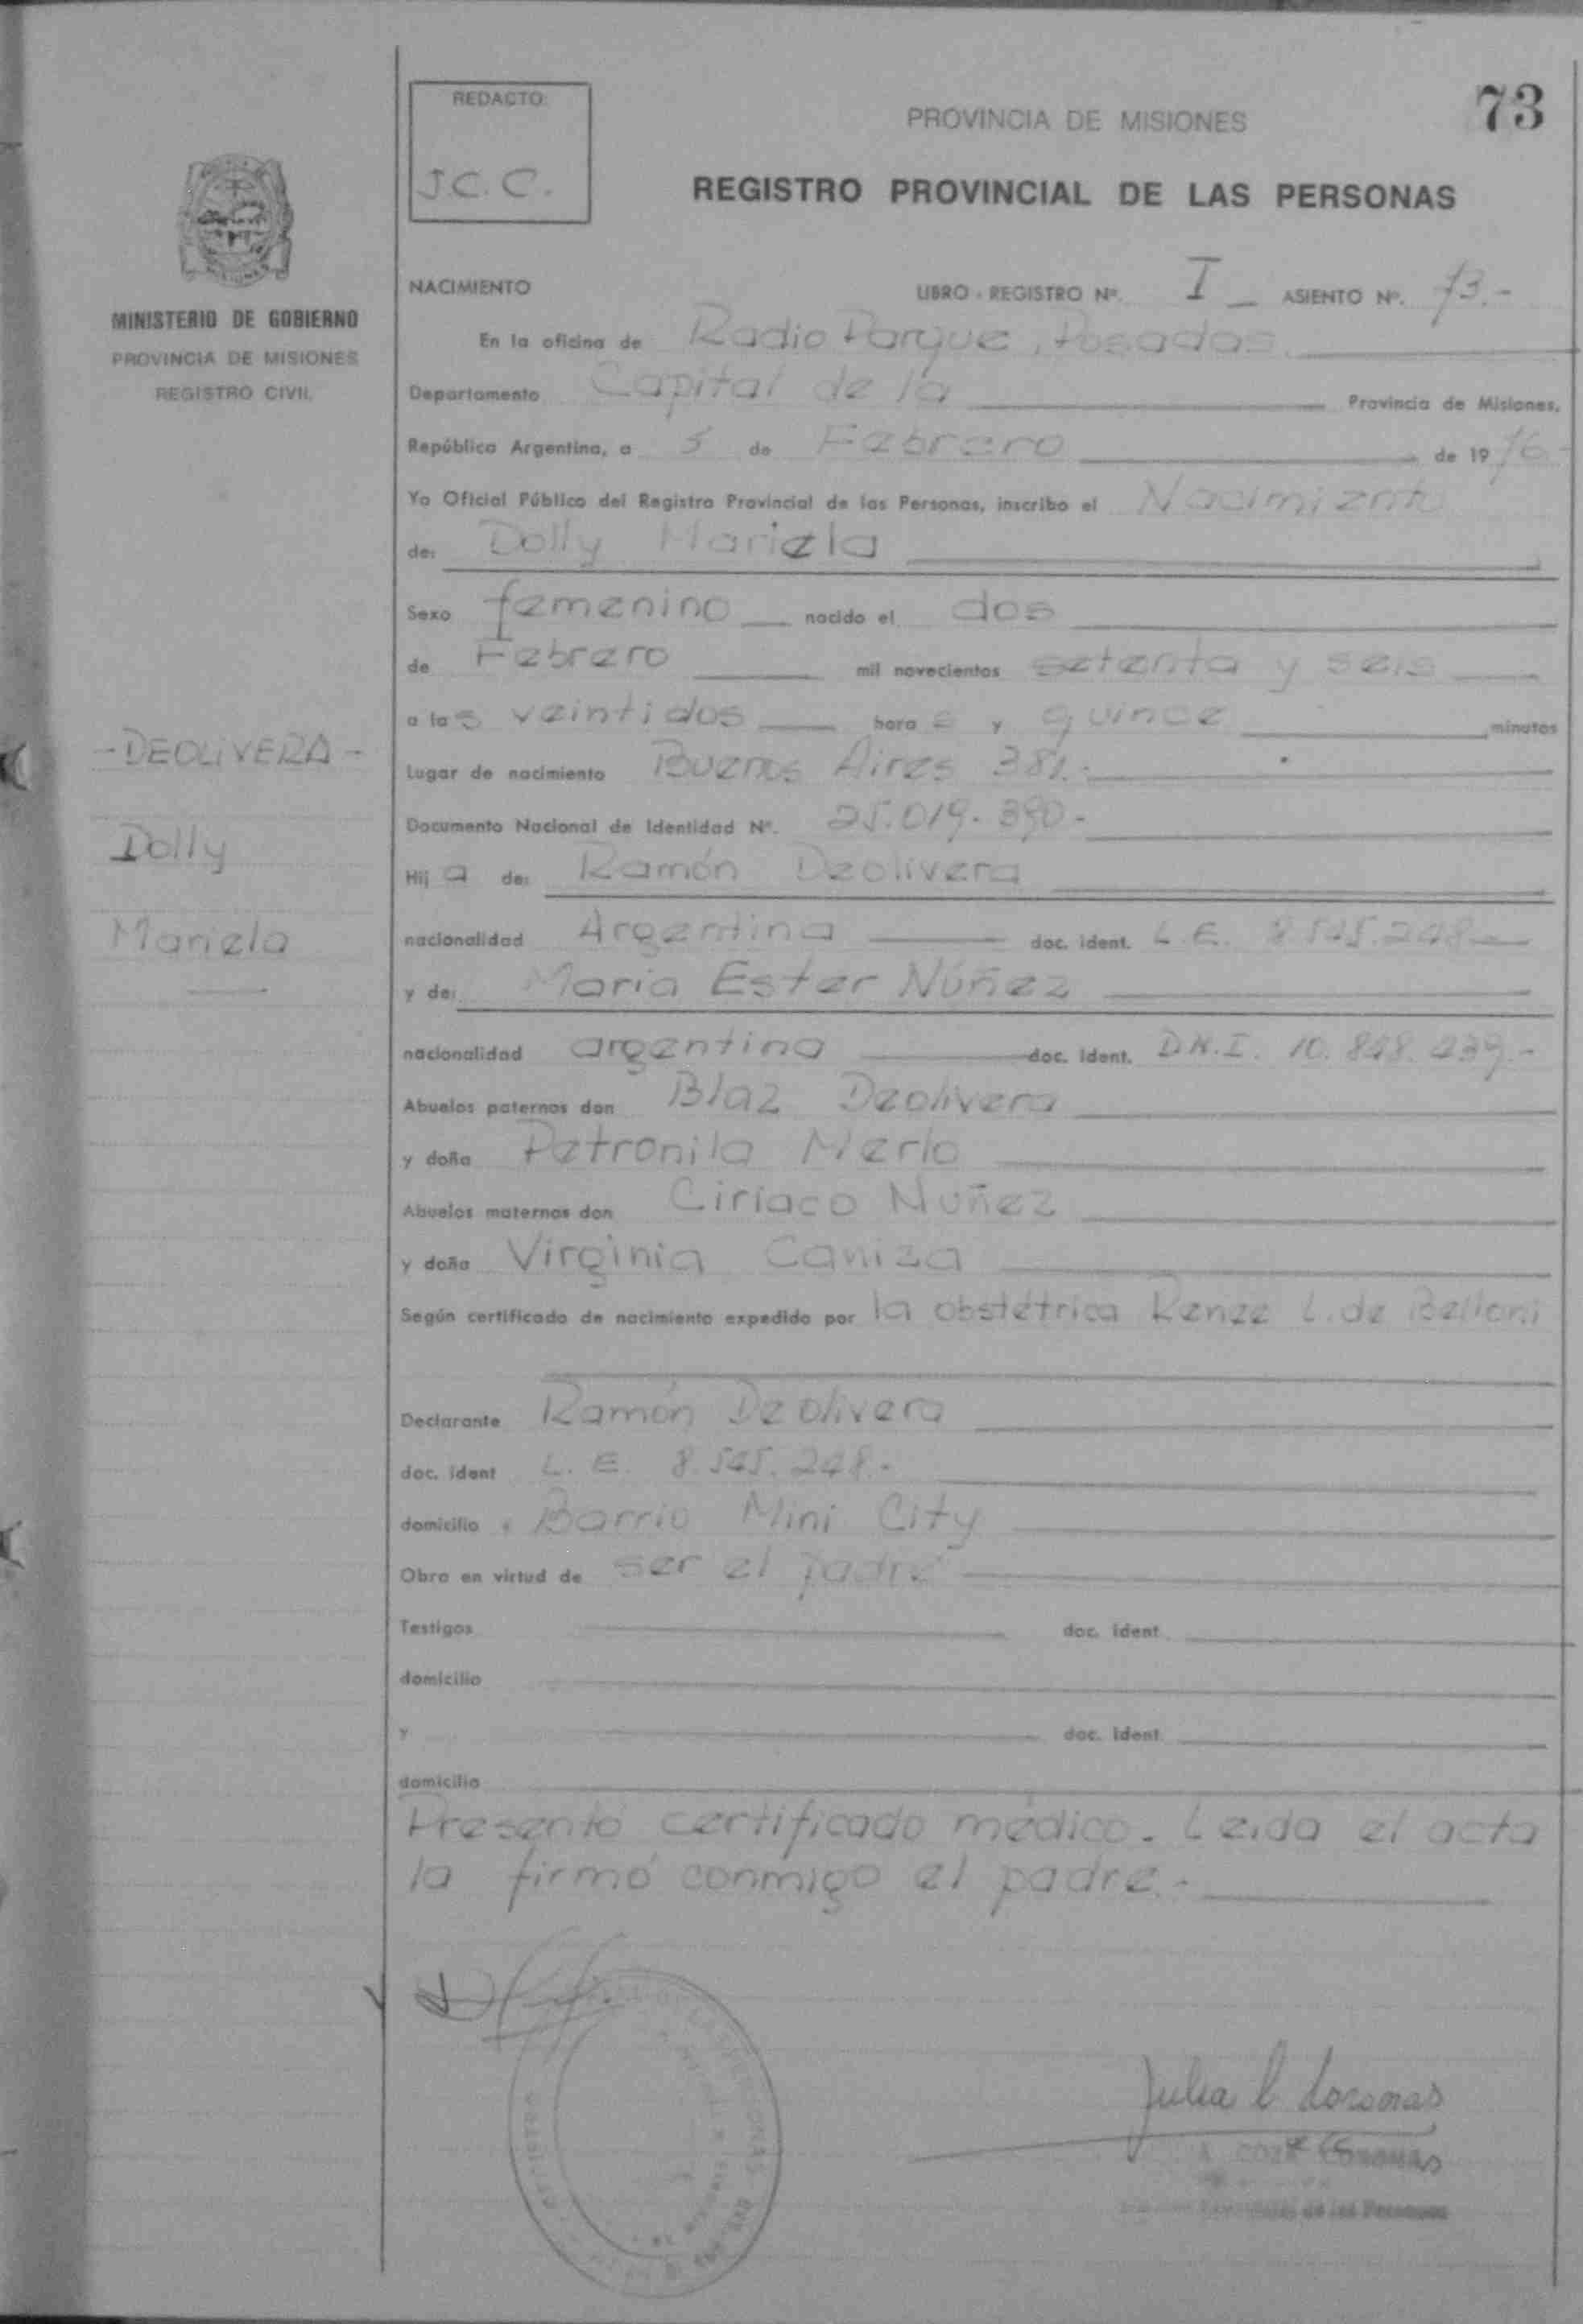 73
REDACTO:
J.C.C.
PROVINCIA DE MISIONES
REGISTRO PROVINCIAL DE LAS PERSONAS
MINISTERIO DE GOBIERNO
PROVINCIA DE MISIONES
REGISTRO CIVIL
NACIMIENTO LIBRO - REGISTRO Nº. I ASIENTO Nº. 73.-
En la oficina de Radio Parque, Posadas
Departamento Capital de la Provincia de Misiones,
República Argentina, a 5 de Febrero de 1976-
Yo Oficial Público del Registro Provincial de las Personas, inscribo el Nacimiento
de: Dolly Mariela
Sexo femenino nacido el dos
de Febrero mil novecientos setenta y seis
a las veintidos hora s y quince minutos
Lugar de nacimiento Buenos Aires 381.-
Documento Nacional de Identidad Nº. 25.019.390-
Hija de: Ramón Deolivera
nacionalidad Argentina doc. ident. L.E. 8.545.248
y de: Maria Ester Núñez
nacionalidad argentina doc. ident. D.N.I. 10.848.239.-
Abuelos paternos don Blaz Deolivera
y doña Petronila Merlo
Abuelos maternos don Ciriaco Nuñez
y doña Virginia Caniza
Según certificado de nacimiento expedido por la obstétrica Renee L. de Belloni
Declarante Ramón Deolivera
doc. ident L.E. 8.545.248.-
domicilio Barrio Mini City
Obra en virtud de ser el padre
Testigos doc. ident
domicilio
y doc. ident
domicilio
Presentó certificado médico. Leida el acta
la firmó conmigo el padre.-
-DEOLIVERA-
Dolly
Mariela
Julia C
de las Personas